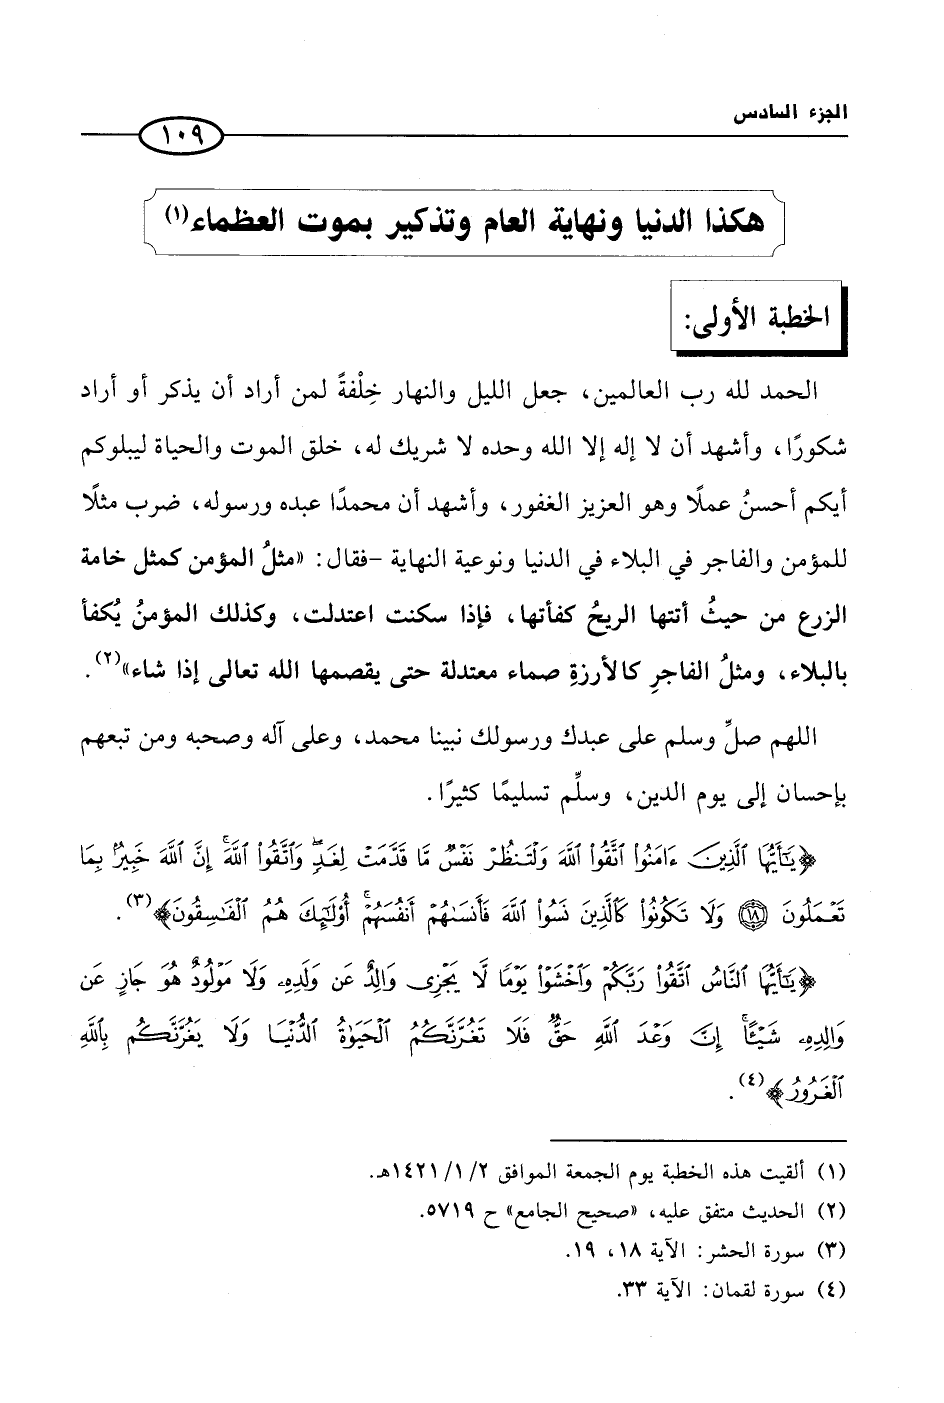 الجزء السادس
١٠٩
هكذا الدنيا ونهاية العام وتذكير بموت العظماء(١)
الخطبة الأولى:
الحمد لله رب العالمين، جعل الليل والنهار خِلْفةً لمن أراد أن يذكر أو أراد
شكورًا، وأشهد أن لا إله إلا الله وحده لا شريك له، خلق الموت والحياة ليبلوكم
أيكم أحسنُ عملًا وهو العزيز الغفور، وأشهد أن محمدًا عبده ورسوله، ضرب مثلًا
للمؤمن والفاجر في البلاء في الدنيا ونوعية النهاية -فقال: «مثلُ المؤمن كمثل خامة
الزرع من حيثُ أتتها الريحُ كفأتها، فإذا سكنت اعتدلت، وكذلك المؤمنُ يُكفأ
بالبلاء، ومثلُ الفاجرِ كالأرزةِ صماء معتدلة حتى يقصمها الله تعالى إذا شاء»(٢).
اللهم صلِّ وسلم على عبدك ورسولك نبينا محمد، وعلى آله وصحبه ومن تبعهم
بإحسان إلى يوم الدين، وسلِّم تسليمًا كثيرًا.
﴿يَٰٓأَيُّهَا ٱلَّذِينَ ءَامَنُوا۟ ٱتَّقُوا۟ ٱللَّهَ وَلْتَنظُرْ نَفْسٌ مَّا قَدَّمَتْ لِغَدٍۖ وَٱتَّقُوا۟ ٱللَّهَۚ إِنَّ ٱللَّهَ خَبِيرٌۢ بِمَا
تَعْمَلُونَ ﴿١٨﴾ وَلَا تَكُونُوا۟ كَٱلَّذِينَ نَسُوا۟ ٱللَّهَ فَأَنسَىٰهُمْ أَنفُسَهُمْۚ أُو۟لَٰٓئِكَ هُمُ ٱلْفَٰسِقُونَ﴾(٣).
﴿يَٰٓأَيُّهَا ٱلنَّاسُ ٱتَّقُوا۟ رَبَّكُمْ وَٱخْشَوْا۟ يَوْمًا لَّا يَجْزِى وَالِدٌ عَن وَلَدِهِۦ وَلَا مَوْلُودٌ هُوَ جَازٍ عَن
وَالِدِهِۦ شَيْـًٔاۚ إِنَّ وَعْدَ ٱللَّهِ حَقٌّۖ فَلَا تَغُرَّنَّكُمُ ٱلْحَيَوٰةُ ٱلدُّنْيَا وَلَا يَغُرَّنَّكُم بِٱللَّهِ
ٱلْغَرُورُ﴾(٤).
(١) ألقيت هذه الخطبة يوم الجمعة الموافق ١٤٢١/١/٢هـ.
(٢) الحديث متفق عليه، «صحيح الجامع» ح ٥٧١٩.
(٣) سورة الحشر: الآية ١٨، ١٩.
(٤) سورة لقمان: الآية ٣٣.